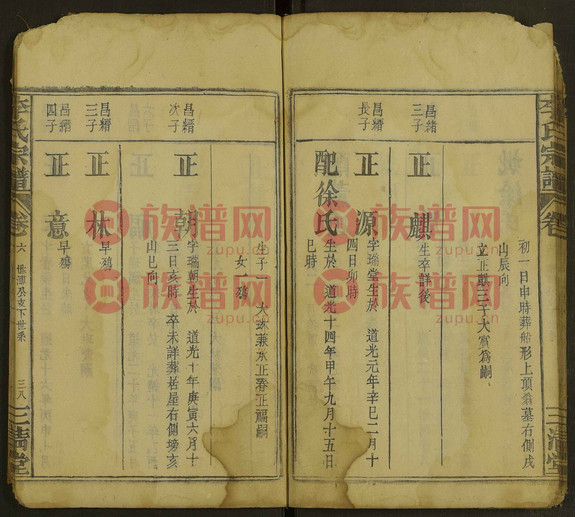 李氏宗譜
卷
三清堂
初一日申時葬船形上頂着墓右側戌
山辰向
立正
三子大
爲嗣
昌緒
三子
正麒
生卒詳後
昌緒
長子
正源
字瑞堂生於 道光元年辛巳二月十
四日卯時
配徐氏
生於 道光十四年甲午九月十五日
巳時
生子一 大
兼承正春正福嗣
女一殤
昌緒
次子
正朝
字瑞朝生於 道光十年庚寅六月十
三日亥時 卒未詳葬居屋右側塝亥
山巳向
昌緒
三子
正林
早殤
昌緒
四子
正意
早殤
李氏宗譜
卷六
公支下世系
三八
三清堂
族谱网
zupu.cn
族谱网
zupu.cn
族谱网
zupu.cn
族谱网
zupu.cn